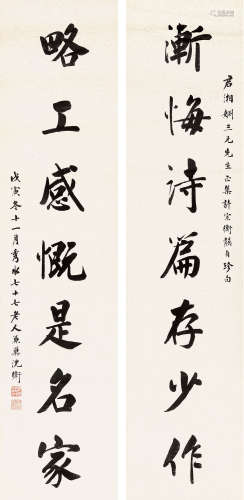 漸悔詩篇存少作
君湘姻三兄先生正集許宗衡龔自珍句
略工感慨是名家
戊寅冬十一月秀水七十七老人兼巢沈衛